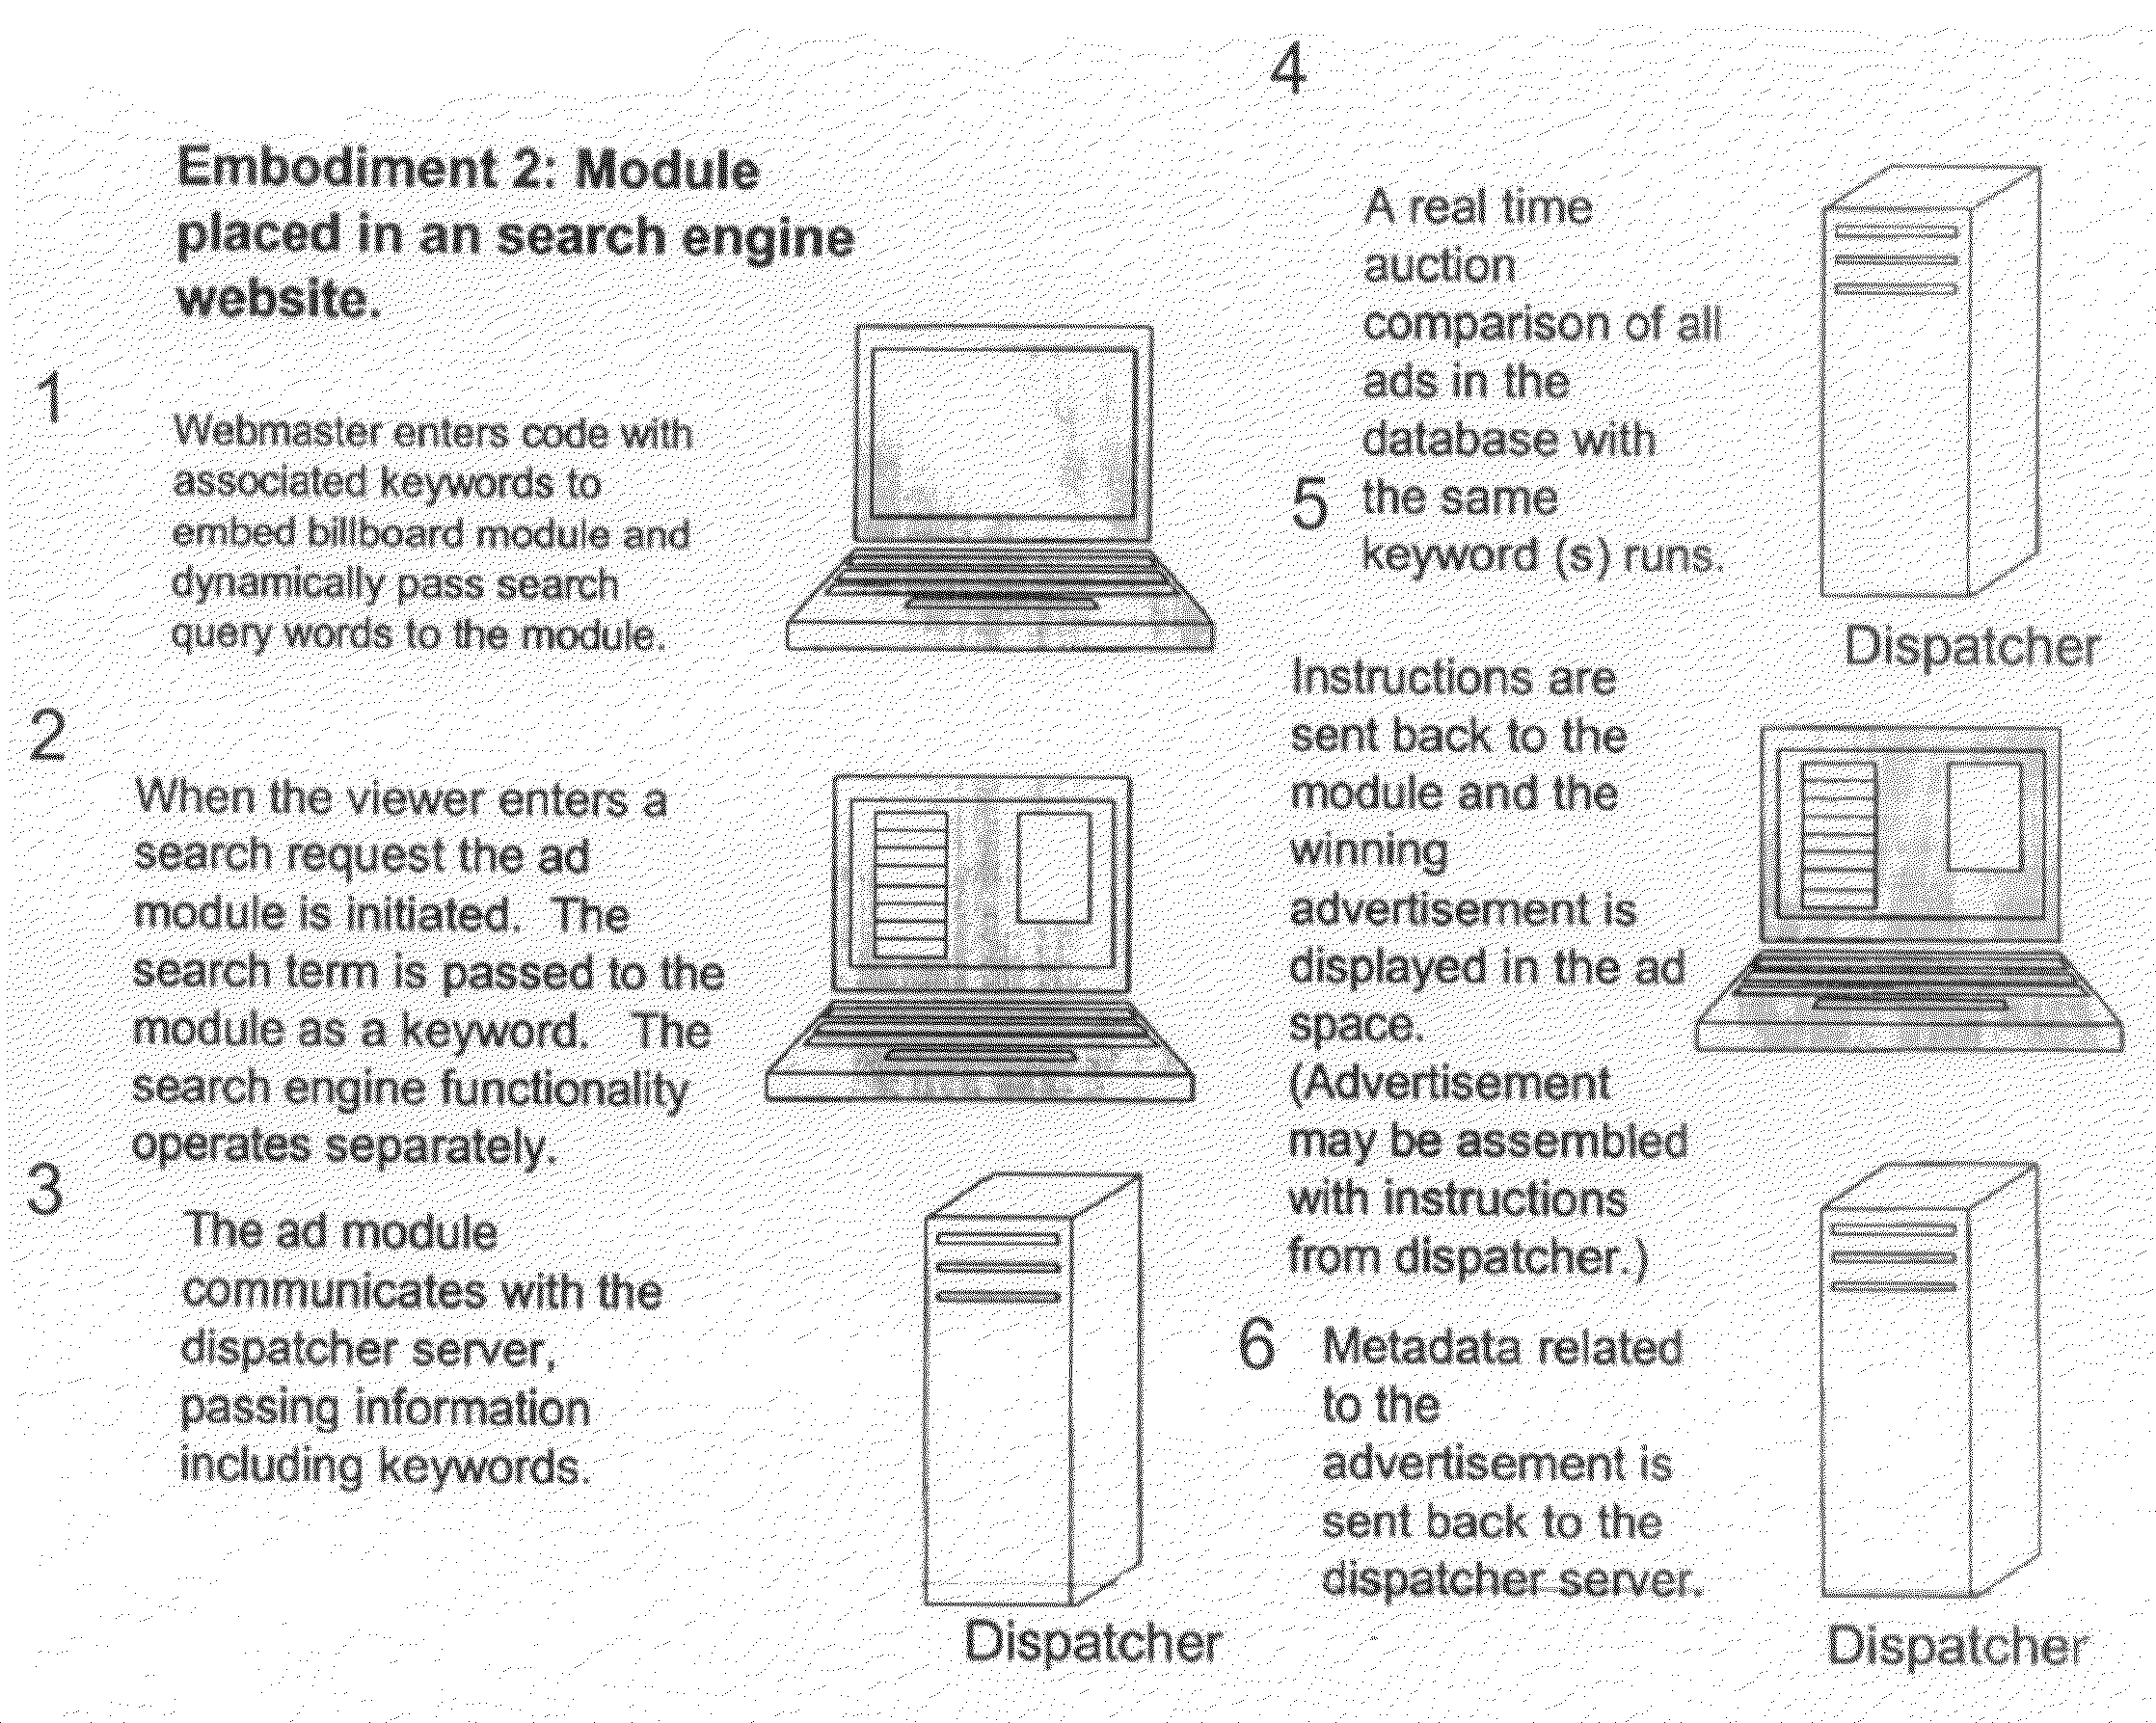 Embodiment 2: Module
placed in an search engine
website.
1
Webmaster enters code with
associated keywords to
embed billboard module and
dynamically pass search
query words to the module.
2
When the viewer enters a
search request the ad
module is initiated.  The
search term is passed to the
module as a keyword.  The
search engine functionality
operates separately.
3
The ad module
communicates with the
dispatcher server,
passing information
including keywords.
Dispatcher
4
A real time
auction
comparison of all
ads in the
database with
the same
keyword (s) runs.
Dispatcher
5
Instructions are
sent back to the
module and the
winning
advertisement is
displayed in the ad
space.
(Advertisement
may be assembled
with instructions
from dispatcher.)
6
Metadata related
to the
advertisement is
sent back to the
dispatcher server.
Dispatcher